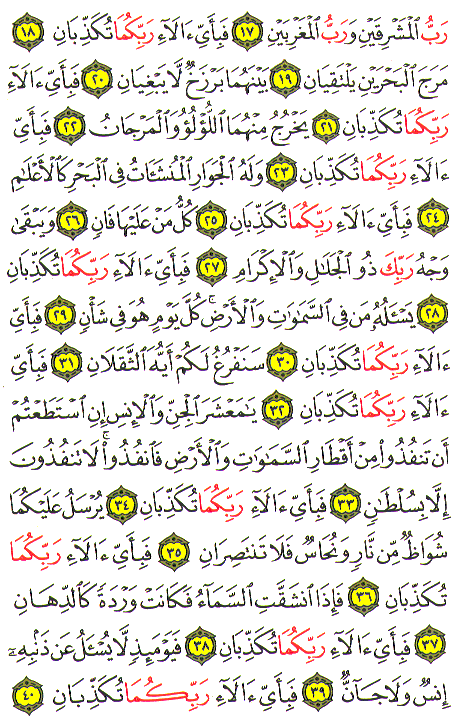 رَبُّ ٱلْمَشْرِقَيْنِ وَرَبُّ ٱلْمَغْرِبَيْنِ ١٧ فَبِأَىِّ ءَالَآءِ رَبِّكُمَا تُكَذِّبَانِ ١٨
مَرَجَ ٱلْبَحْرَيْنِ يَلْتَقِيَانِ ١٩ بَيْنَهُمَا بَرْزَخٌ لَّا يَبْغِيَانِ ٢٠ فَبِأَىِّ ءَالَآءِ
رَبِّكُمَا تُكَذِّبَانِ ٢١ يَخْرُجُ مِنْهُمَا ٱللُّؤْلُؤُ وَٱلْمَرْجَانُ ٢٢ فَبِأَىِّ
ءَالَآءِ رَبِّكُمَا تُكَذِّبَانِ ٢٣ وَلَهُ ٱلْجَوَارِ ٱلْمُنشَـَٔاتُ فِى ٱلْبَحْرِ كَٱلْأَعْلَٰمِ
٢٤ فَبِأَىِّ ءَالَآءِ رَبِّكُمَا تُكَذِّبَانِ ٢٥ كُلُّ مَنْ عَلَيْهَا فَانٍ ٢٦ وَيَبْقَىٰ
وَجْهُ رَبِّكَ ذُو ٱلْجَلَٰلِ وَٱلْإِكْرَامِ ٢٧ فَبِأَىِّ ءَالَآءِ رَبِّكُمَا تُكَذِّبَانِ
٢٨ يَسْـَٔلُهُۥ مَن فِى ٱلسَّمَٰوَٰتِ وَٱلْأَرْضِ ۚ كُلَّ يَوْمٍ هُوَ فِى شَأْنٍ ٢٩ فَبِأَىِّ
ءَالَآءِ رَبِّكُمَا تُكَذِّبَانِ ٣٠ سَنَفْرُغُ لَكُمْ أَيُّهَ ٱلثَّقَلَانِ ٣١ فَبِأَىِّ
ءَالَآءِ رَبِّكُمَا تُكَذِّبَانِ ٣٢ يَٰمَعْشَرَ ٱلْجِنِّ وَٱلْإِنسِ إِنِ ٱسْتَطَعْتُمْ
أَن تَنفُذُوا۟ مِنْ أَقْطَارِ ٱلسَّمَٰوَٰتِ وَٱلْأَرْضِ فَٱنفُذُوا۟ ۚ لَا تَنفُذُونَ
إِلَّا بِسُلْطَٰنٍ ٣٣ فَبِأَىِّ ءَالَآءِ رَبِّكُمَا تُكَذِّبَانِ ٣٤ يُرْسَلُ عَلَيْكُمَا
شُوَاظٌ مِّن نَّارٍ وَنُحَاسٌ فَلَا تَنتَصِرَانِ ٣٥ فَبِأَىِّ ءَالَآءِ رَبِّكُمَا
تُكَذِّبَانِ ٣٦ فَإِذَا ٱنشَقَّتِ ٱلسَّمَآءُ فَكَانَتْ وَرْدَةً كَٱلدِّهَانِ
٣٧ فَبِأَىِّ ءَالَآءِ رَبِّكُمَا تُكَذِّبَانِ ٣٨ فَيَوْمَئِذٍ لَّا يُسْـَٔلُ عَن ذَنۢبِهِۦٓ
إِنسٌ وَلَا جَآنٌّ ٣٩ فَبِأَىِّ ءَالَآءِ رَبِّكُمَا تُكَذِّبَانِ ٤٠